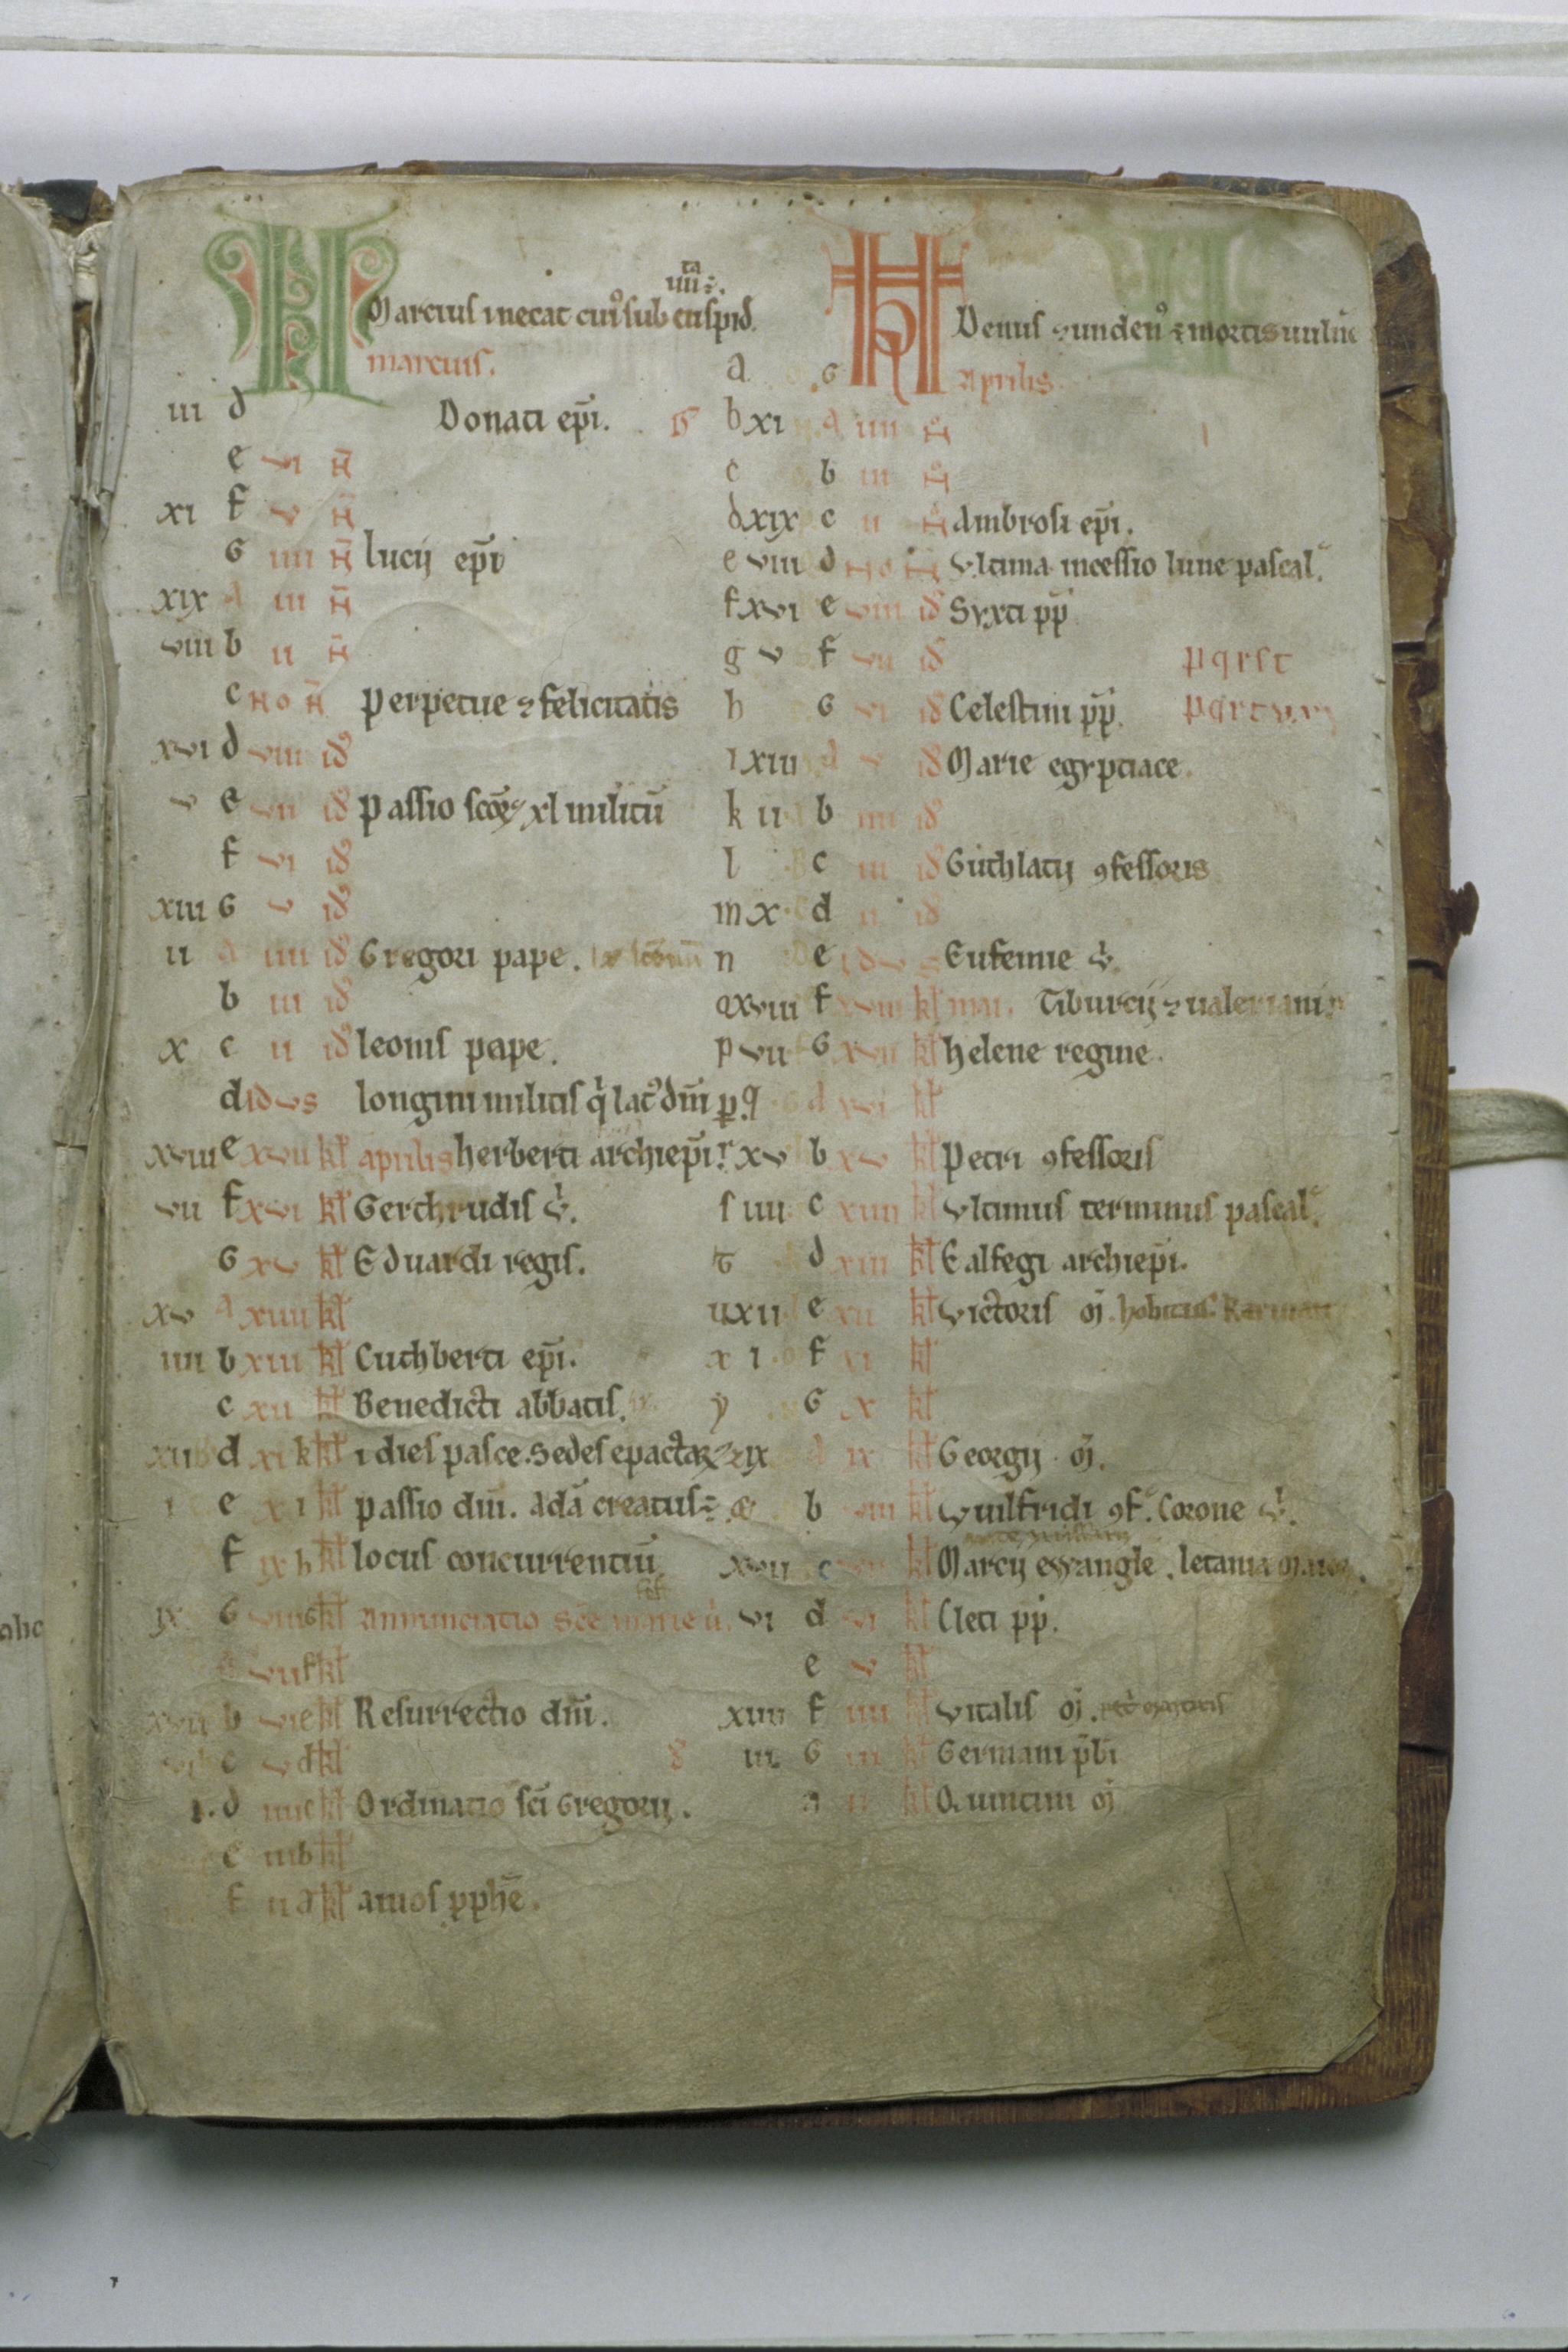 iiii:. ta
Marcius necat cui⁹ sub cuspid.
marcius.
iii d Donati ep̄i. G
e vi N̄
xi f v N̄
G iiii N̄ lucij ep̄i
xix a iii N̄
viii b ii N̄
c No N̄ perpetue ⁊ felicitatis
xvi d viii id
v e vii id passio sc̄oꝝ xl militū
f vi id
xiii G v id
ii a iiii id Gregori pape.
b iii id
x c ii id leonis pape.
d idvs longini militis q̇ lac̄ dn̄i ꝑ.
xviii e xvii kł aprilis herberti archiep̄i.
vii f xvi kł Gerthrudis v̇.
G xv kł Eduardi regis.
xv a xiiii kł
iiii b xiii kł Cuthberti ep̄i.
c xii kł Benedicti abbatis.
xii d xi k kł i dies pasce. Sedes epactaꝝ
i e x i kł passio dn̄i. Adā creatus:.
f ix h kł locus concurrentiū
ix G viii G kł Annunciatio sc̄e marie
a vii f kł
xvii b vi e kł Resurrectio dn̄i.
vi c v d kł
d iiii c kł Ordinatio sc̄i Gregorij.
e iii b kł
f ii a kł amos pphē.
Venus ⁊ unden⁹ ÷ mortis uuln̄e
Aprilis.
a G
b xi a iiii N̄
c b iii N̄
d xix c ii N̄ Ambrosi ep̄i.
e viii d No N̄ vltima incessio lune pascal̄.
f xvi e viii id Syxti pp̄
g v f vii id pqrst
h G vi id Celestini pp̄.
i xiii a v id Marie egyptiace.
k ii b iiii id
l c iii id Guthlacij ꝯfessoris
m x d ii id
n e idvs Eufemie v̇.
o xviii f xviii kł mai. Tiburcij ⁊ ualeriani
p vii G xvii kł helene regine.
q a xvi kł
r xv b xv kł petri ꝯfessoris
s iiii c xiiii kł vltimus terminus pascal̄.
t d xiii kł Ealfegi archiep̄i.
u xii e xii kł victoris m̄.
x i f xi kł
y G x kł
z ix a ix kł Georgij m̄.
æ b viii kł vuilfridi ꝯf. Corone v̇.
xvii c vii kł Marcij evvangłe. letania maior.
vi d vi kł Cleti pp̄.
e v kł
xiiii f iiii kł vitalis m̄.
8 iii G iii kł Germani p̄bi
a ii kł Quintini m̄